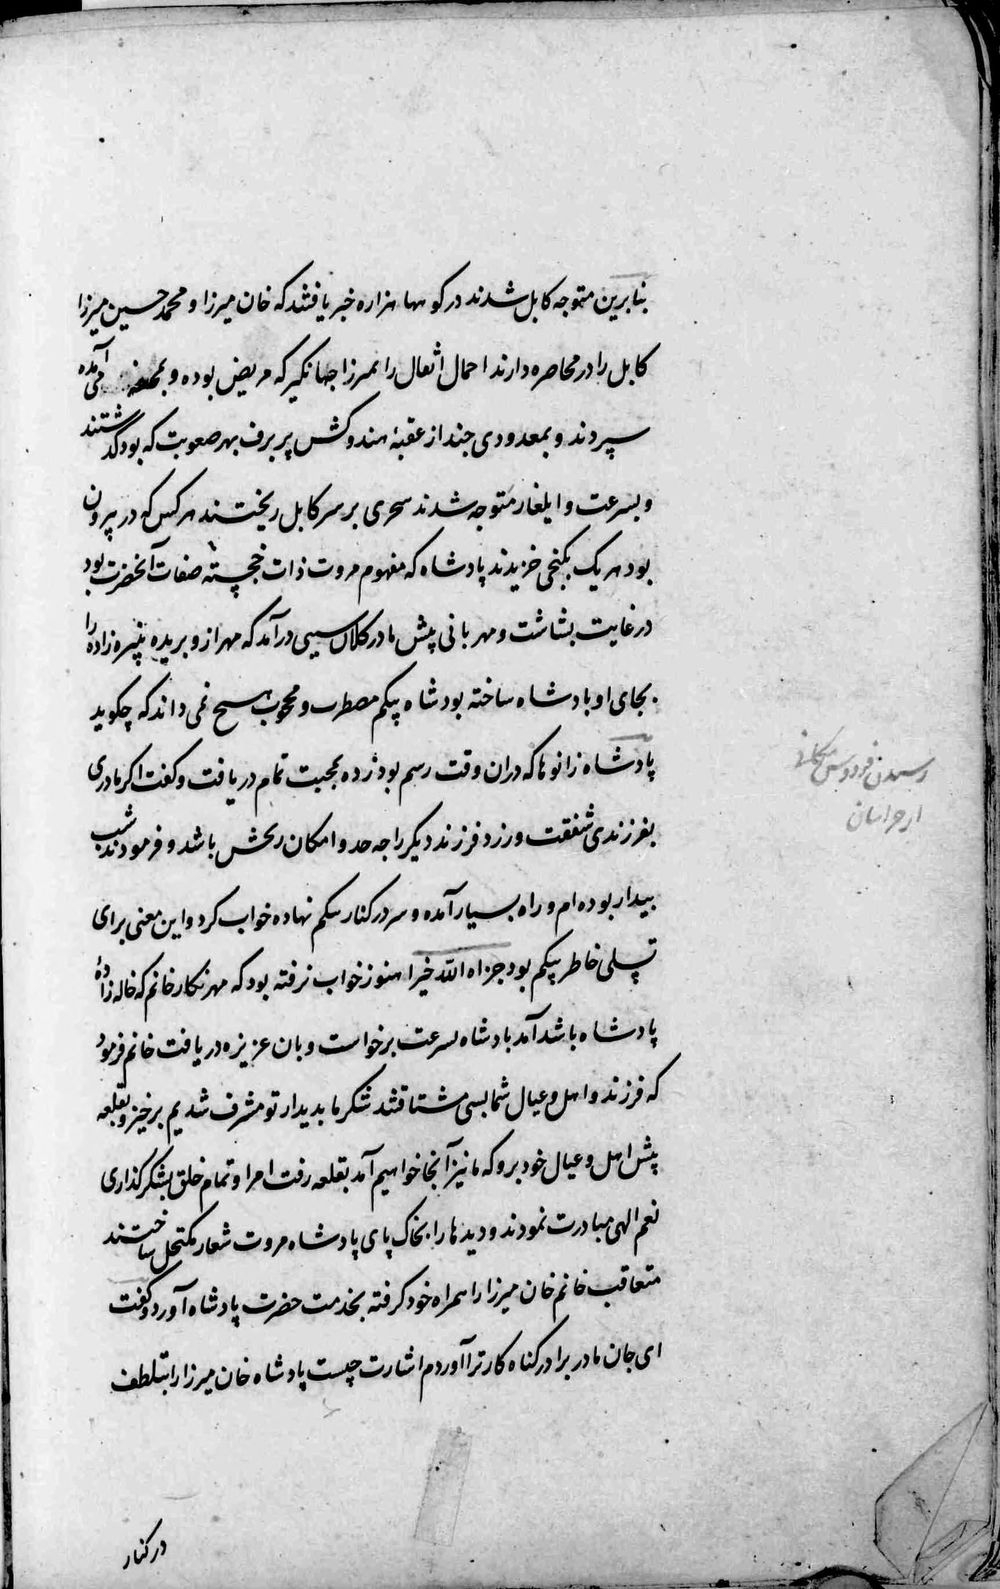 بنابرین متوجه کابل شدند در کوهها هزاره خبر یافتند که خان میرزا و محمد حسین میرزا
کابل را در محاصره دارند احمال اثقال را بمیرزا جهانگیر که مریض بوده و بمحفه می آمده
سپردند و بمعدودی چند از عقبهٔ هندوکش پر برف بهر صعوبت که بود گذشتند
و بسرعت و ایلغار متوجه شدند سحری بر سر کابل ریختند هر کس که در بیرون
بود هر یک بکنجی خزیدند پادشاه که مفهوم مروت ذات خجسته صفات آنحضرت بود
در غایت بشاشت و مهربانی پیش مادر کلان سببی درآمد که مهر از و بریده نبیره زاده را
بجای او پادشاه ساخته بود شاه بیکم مضطرب و محجوب هیچ نمی داند که چکوید
پادشاه زانو ها که دران وقت رسم بود زده بمحبت تمام دریافت و کفت اکر مادری
بفرزندی شفقت ورزد فرزند دیکر را چه حد و امکان رنجش باشد و فرمودند شب
بیدار بوده ام و راه بسیار آمده و سر در کنار بیکم نهاده خواب کرد و این معنی برای
تسلی خاطر بیکم بود جزاه الله خیرا هنوز خواب نرفته بود که مهر نکار خانم که خاله زادهٔ
پادشاه باشد آمد پادشاه بسرعت برخواست و بان عزیزه دریافت خانم فرمود
که فرزند و اهل و عیال شما بسی مشتاقند شکر ما بدیدار تو مشرف شدیم برخیز و بقلعه
پیش اهل و عیال خود برو که ما نیز آنجا خواهیم آمد بقلعه رفت امرا و تمام خلق بشکرکذاری
نعم الهی مبادرت نمودند و دیدها را بخاک پای پادشاه مروت شعار مکتحل ساختند
متعاقب خانم خان میرزا را همراه خود کرفته بخدمت حضرت پادشاه آورد و کفت
ای جان مادر برادر کناه کار ترا آوردم اشارت چیست پادشاه خان میرزا را بتلطف
در کنار
رسیدن فردوس مکانی
از خراسان